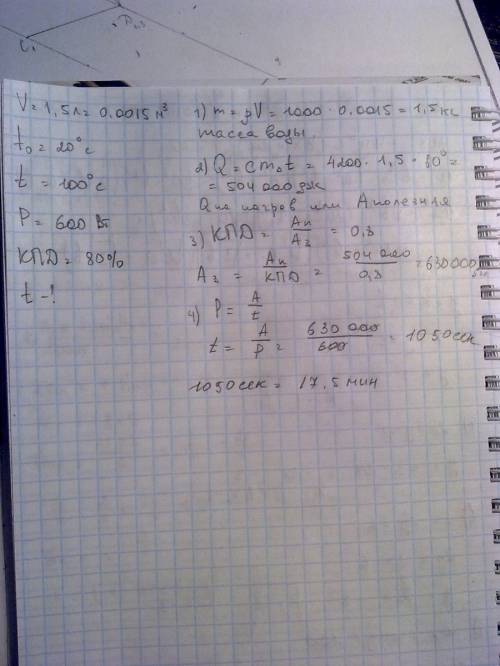 V = 1,5 л = 0,0015 м³
t₀ = 20°с
t = 100°с
P = 600 Вт
КПД = 80%
t - ?
1) m = ρV = 1000 · 0,0015 = 1,5 кг
масса воды.
2) Q = cm₀t = 4200 · 1,5 · 80° =
= 504 000 дж
Q на нагрев или A полезная
3) КПД = Aп/Aз = 0,8
Aз = Aп/КПД = 504 000/0,8 = 630 000 дж
4) P = A/t
t = A/P = 630 000/600 = 1050 сек
1050 сек = 17,5 мин